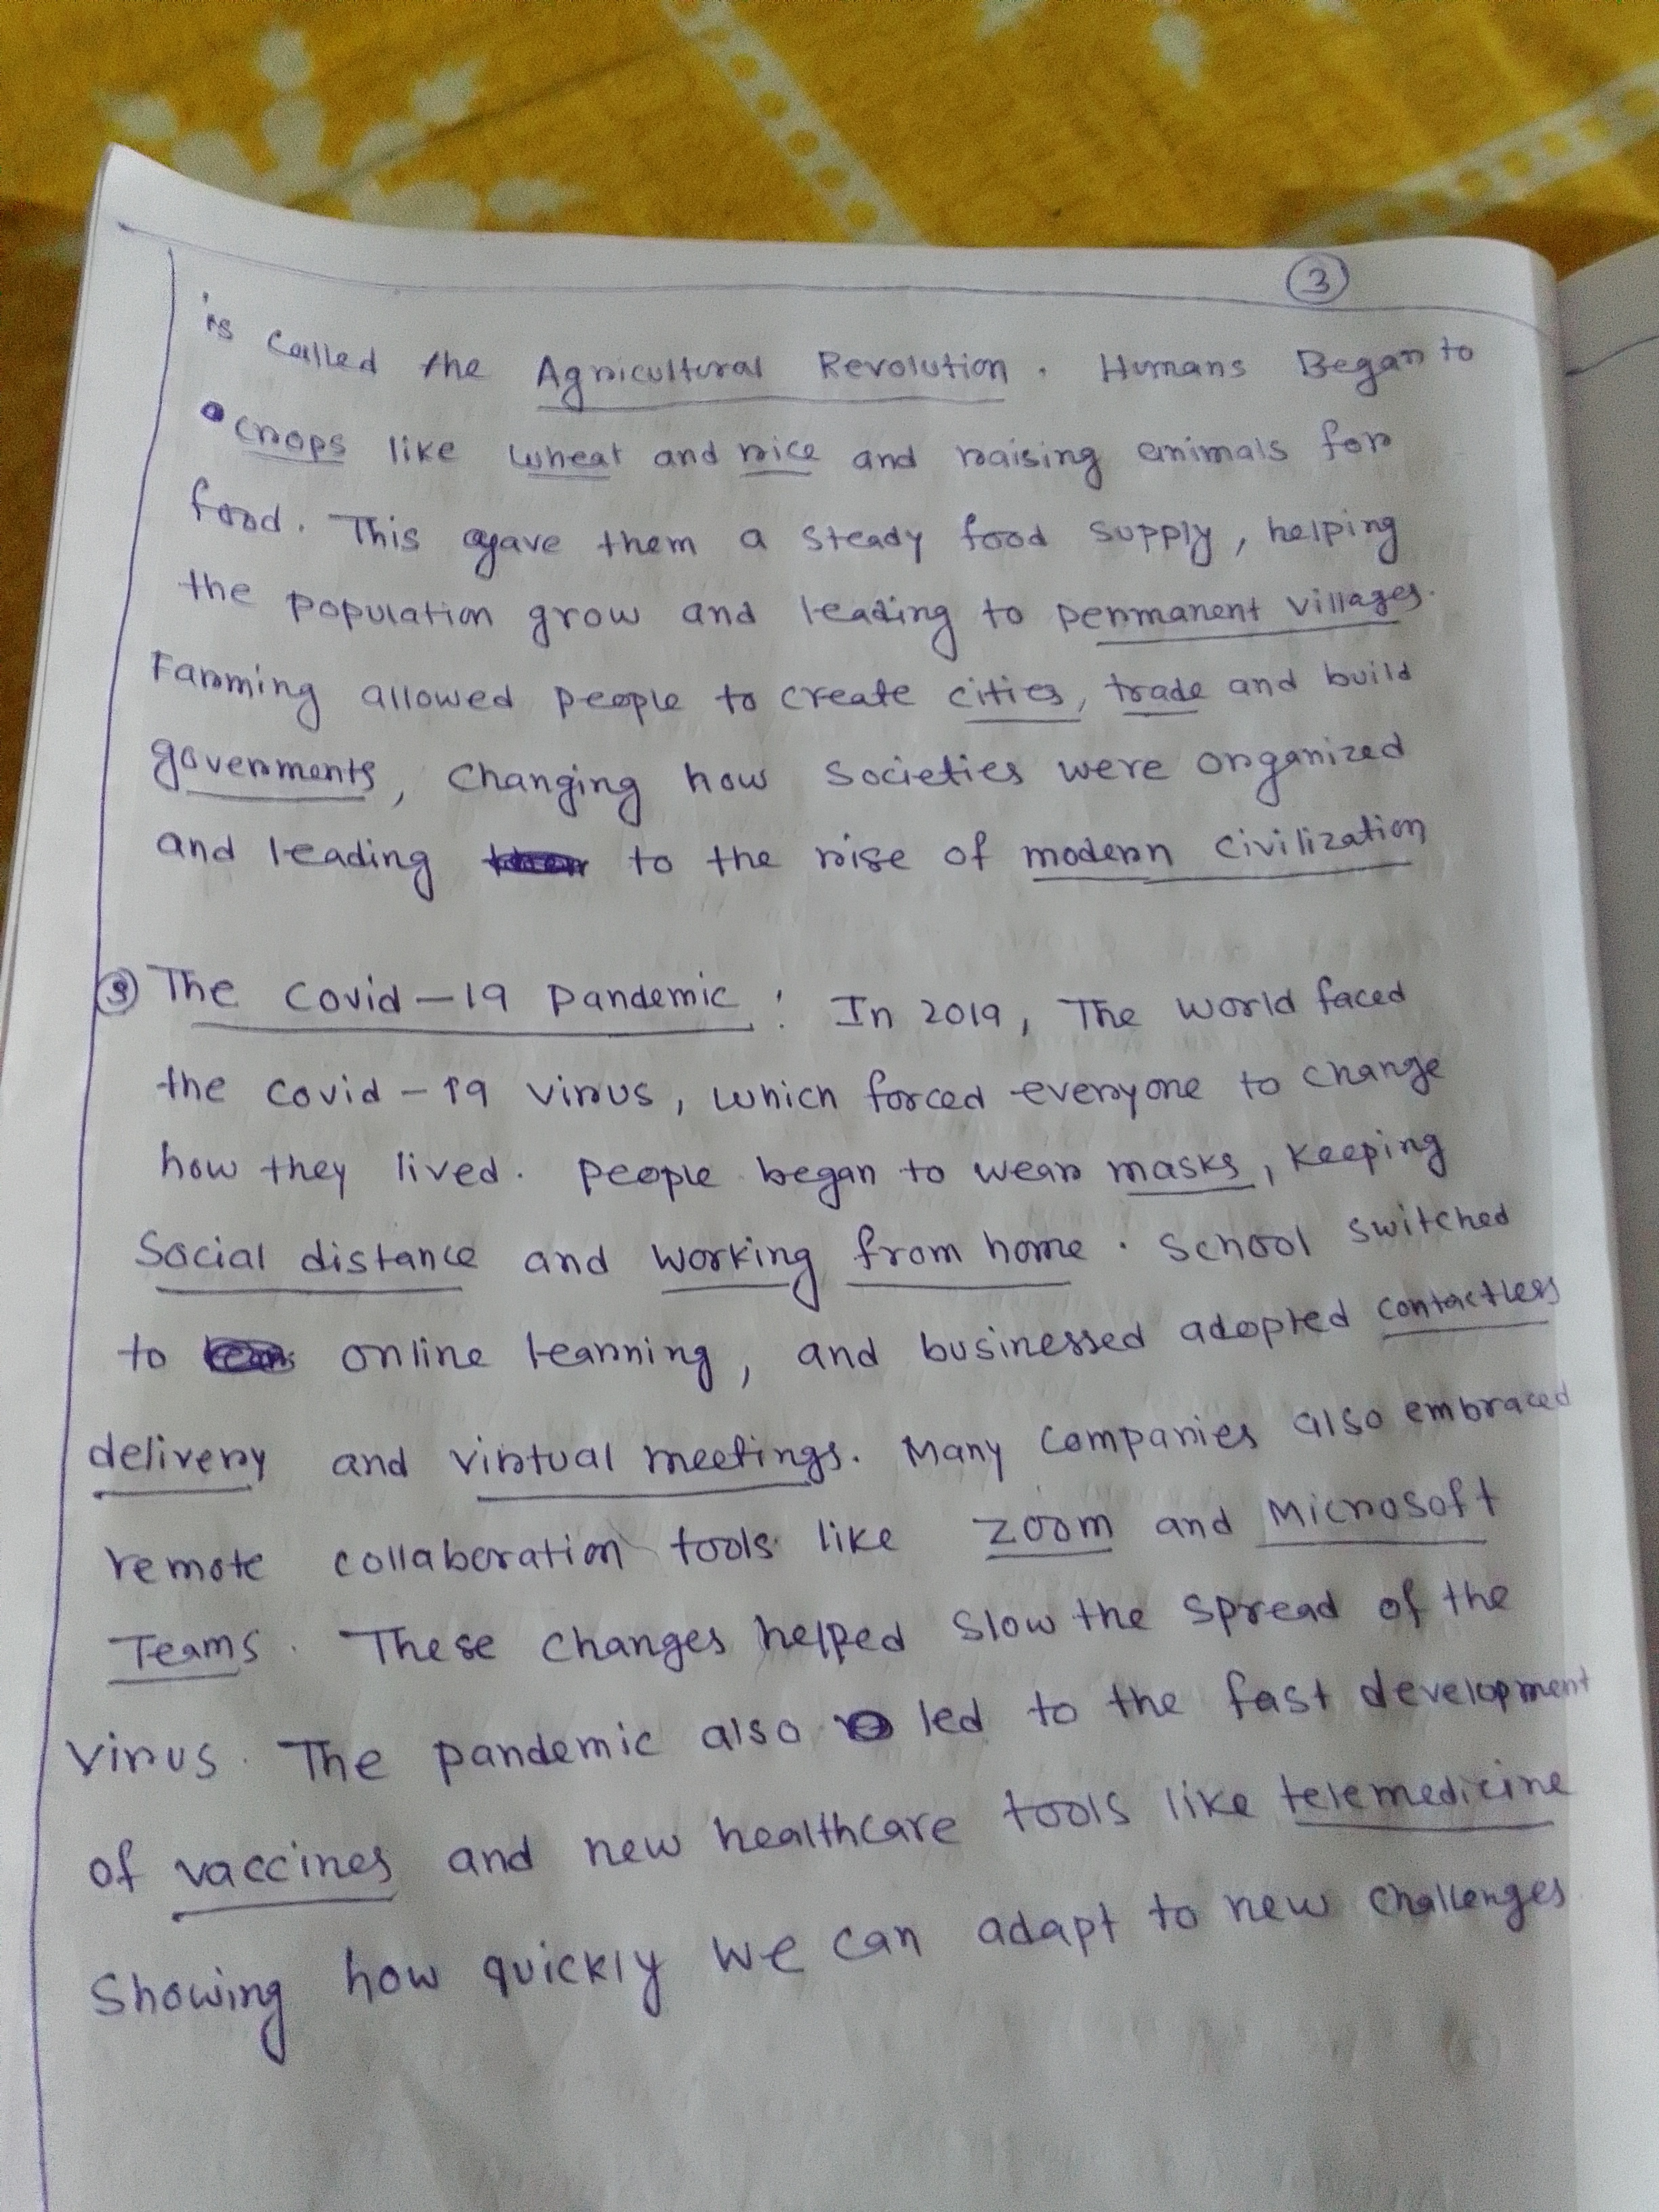 3
is called the Agricultural Revolution. Humans Began to
crops like wheat and rice and raising animals for
food. This gave them a steady food supply, helping
the population grow and leading to permanent villages.
Farming allowed people to create cities, trade and build
governments, changing how societies were organized
and leading to the rise of modern civilization
③ The Covid-19 Pandemic : In 2019, The world faced
the covid-19 virus, which forced everyone to change
how they lived. people began to wear masks, keeping
Social distance and working from home. School switched
to online learning, and businessed adopted contactless
delivery and virtual meetings. Many companies also embraced
remote collaboration tools like zoom and Microsoft
Teams. These changes helped slow the spread of the
virus. The pandemic also led to the fast development
of vaccines and new healthcare tools like telemedicine
Showing how quickly we can adapt to new challenges.